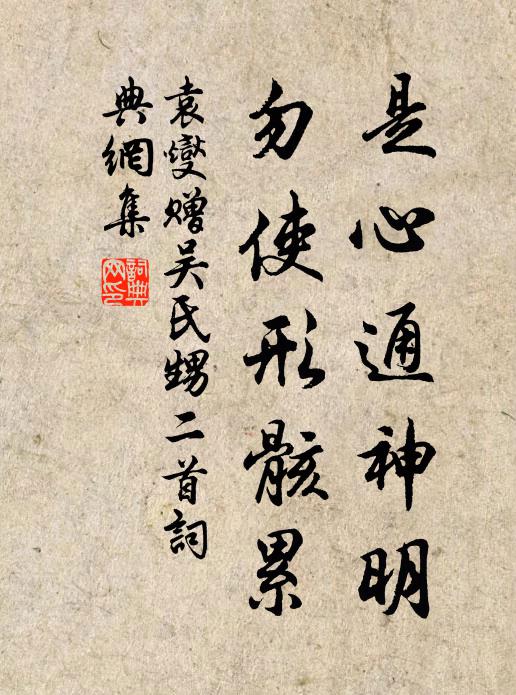 是心通神明
勿使形骸累
袁燮贈吴氏甥二首詞
典網集
詞典网印